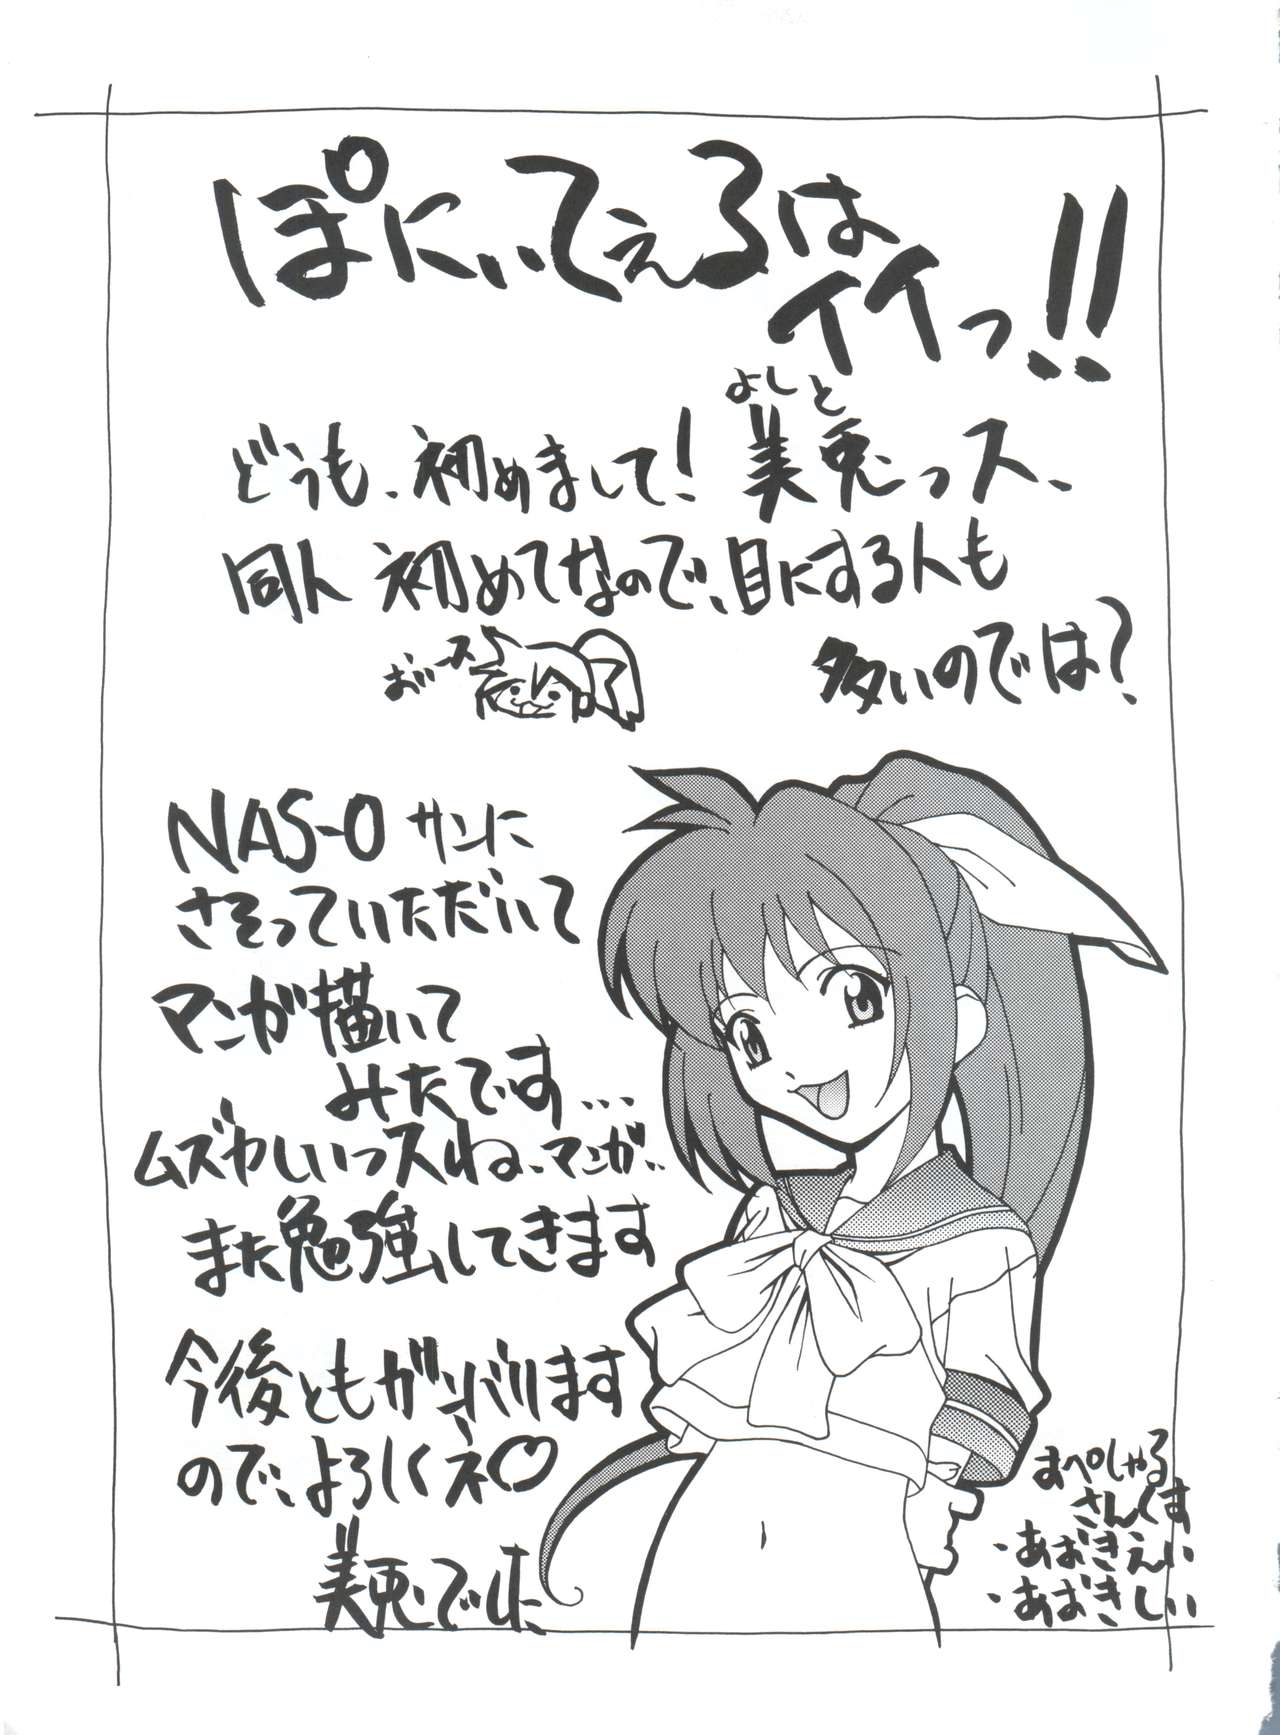 ぽにぃてぇるは
イイっ!!
よしと
どうも、初めまして!美兎っス、
同人初めてなので、目にする人も
多いのでは?
おいース
NAS-O サンに
さそっていただいて
マンガ描いて
みたです...
ムズかしいっスね、マンガ..
また勉強してきます
今後ともガンバります
ので、よろしくネ♡
美兎でした
すぺしゃる
さんくす
・あおきえい
・あおきしい